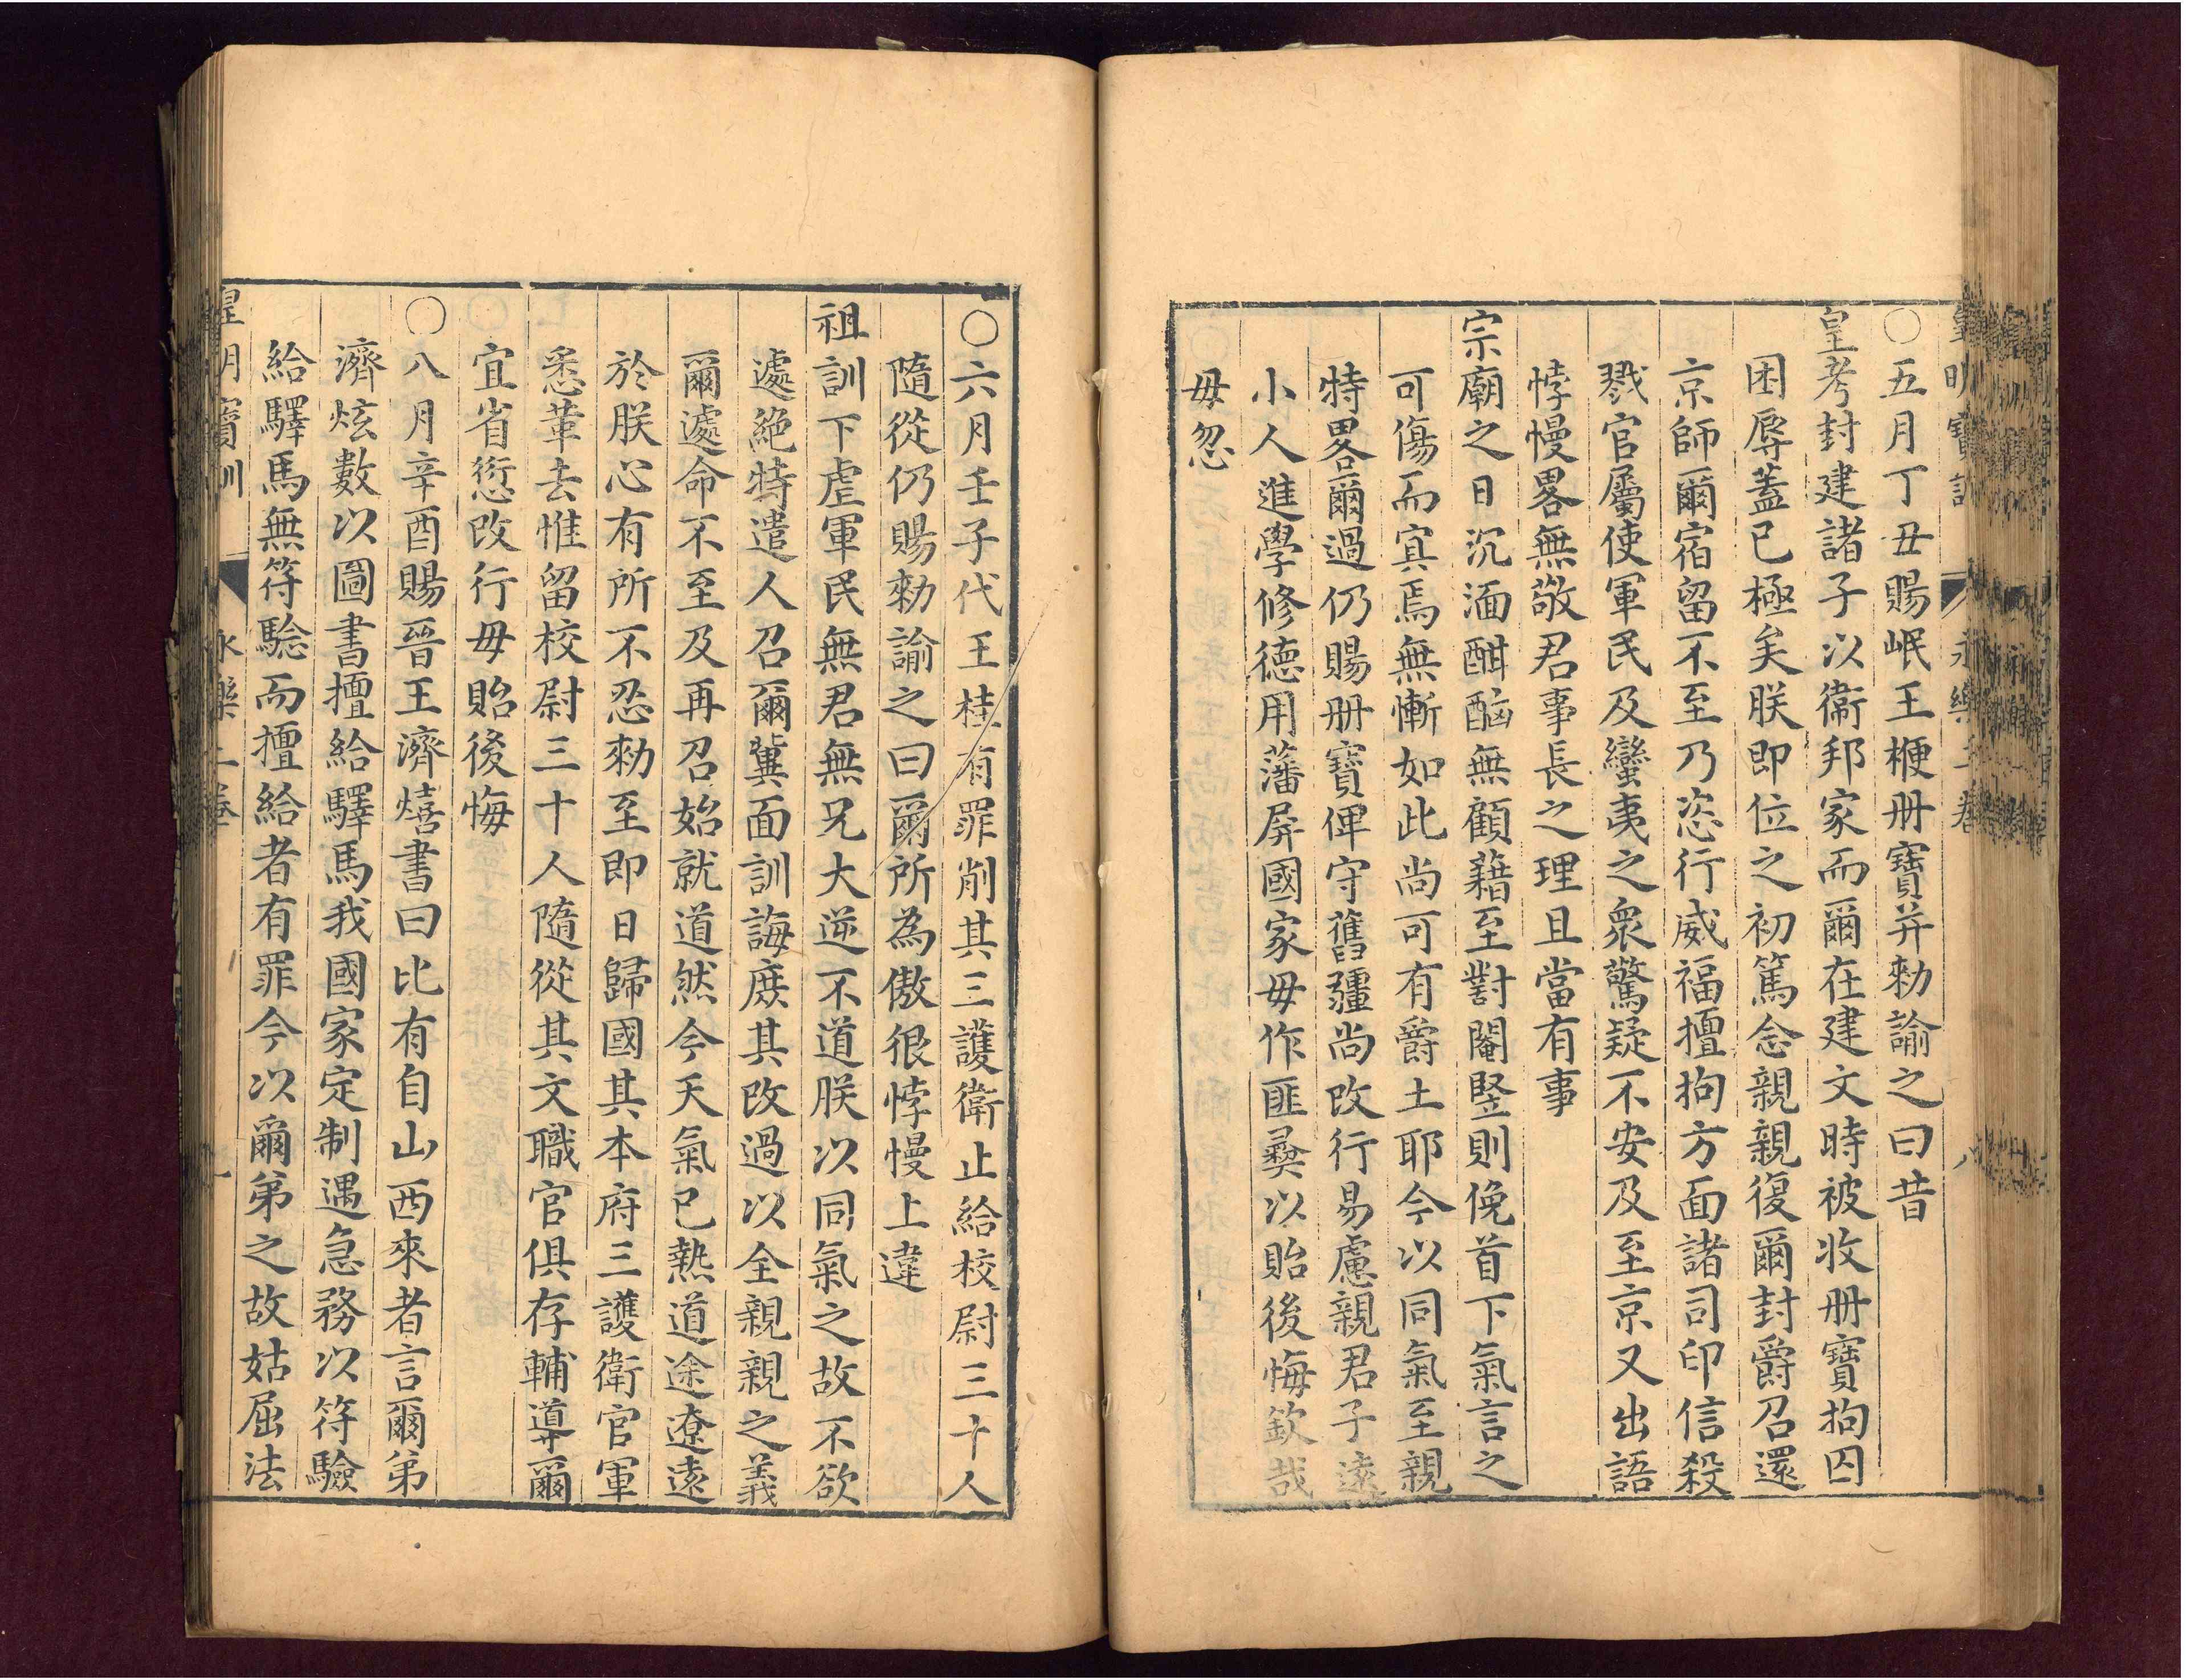 皇明寶訓 永樂二卷 八
○五月丁丑賜岷王楩册寶并勑諭之曰昔
皇考封建諸子以衞邦家而爾在建文時被收册寶拘囚
困辱蓋已極矣朕即位之初篤念親親復爾封爵召還
京師爾宿留不至乃恣行威福擅拘方面諸司印信殺
戮官屬使軍民及蠻夷之衆驚疑不安及至京又出語
悖慢畧無敬君事長之理且當有事
宗廟之日沉湎酣酗無顧藉至對閹竪則俛首下氣言之
可傷而寘焉無慚如此尚可有爵土耶今以同氣至親
特畧爾過仍賜册寶俾守舊疆尚改行易慮親君子遠
小人進學修德用藩屏國家毋作匪彝以貽後悔欽哉
毋忽
○六月壬子代王桂有罪削其三護衛止給校尉三十人
隨從仍賜勑諭之曰爾所為傲很悖慢上違
祖訓下虐軍民無君無兄大逆不道朕以同氣之故不欲
遽絶特遣人召爾冀面訓誨庶其改過以全親親之義
爾處命不至及再召始就道然今天氣已熱道途遼遠
於朕心有所不忍勑至即日歸國其本府三護衛官軍
悉革去惟留校尉三十人隨從其文職官俱存輔導爾
宜省愆改行毋貽後悔
○八月辛酉賜晉王濟熺書曰比有自山西來者言爾弟
濟炫數以圖書擅給驛馬我國家定制遇急務以符驗
給驛馬無符驗而擅給者有罪今以爾弟之故姑屈法
皇明寶訓 永樂二卷